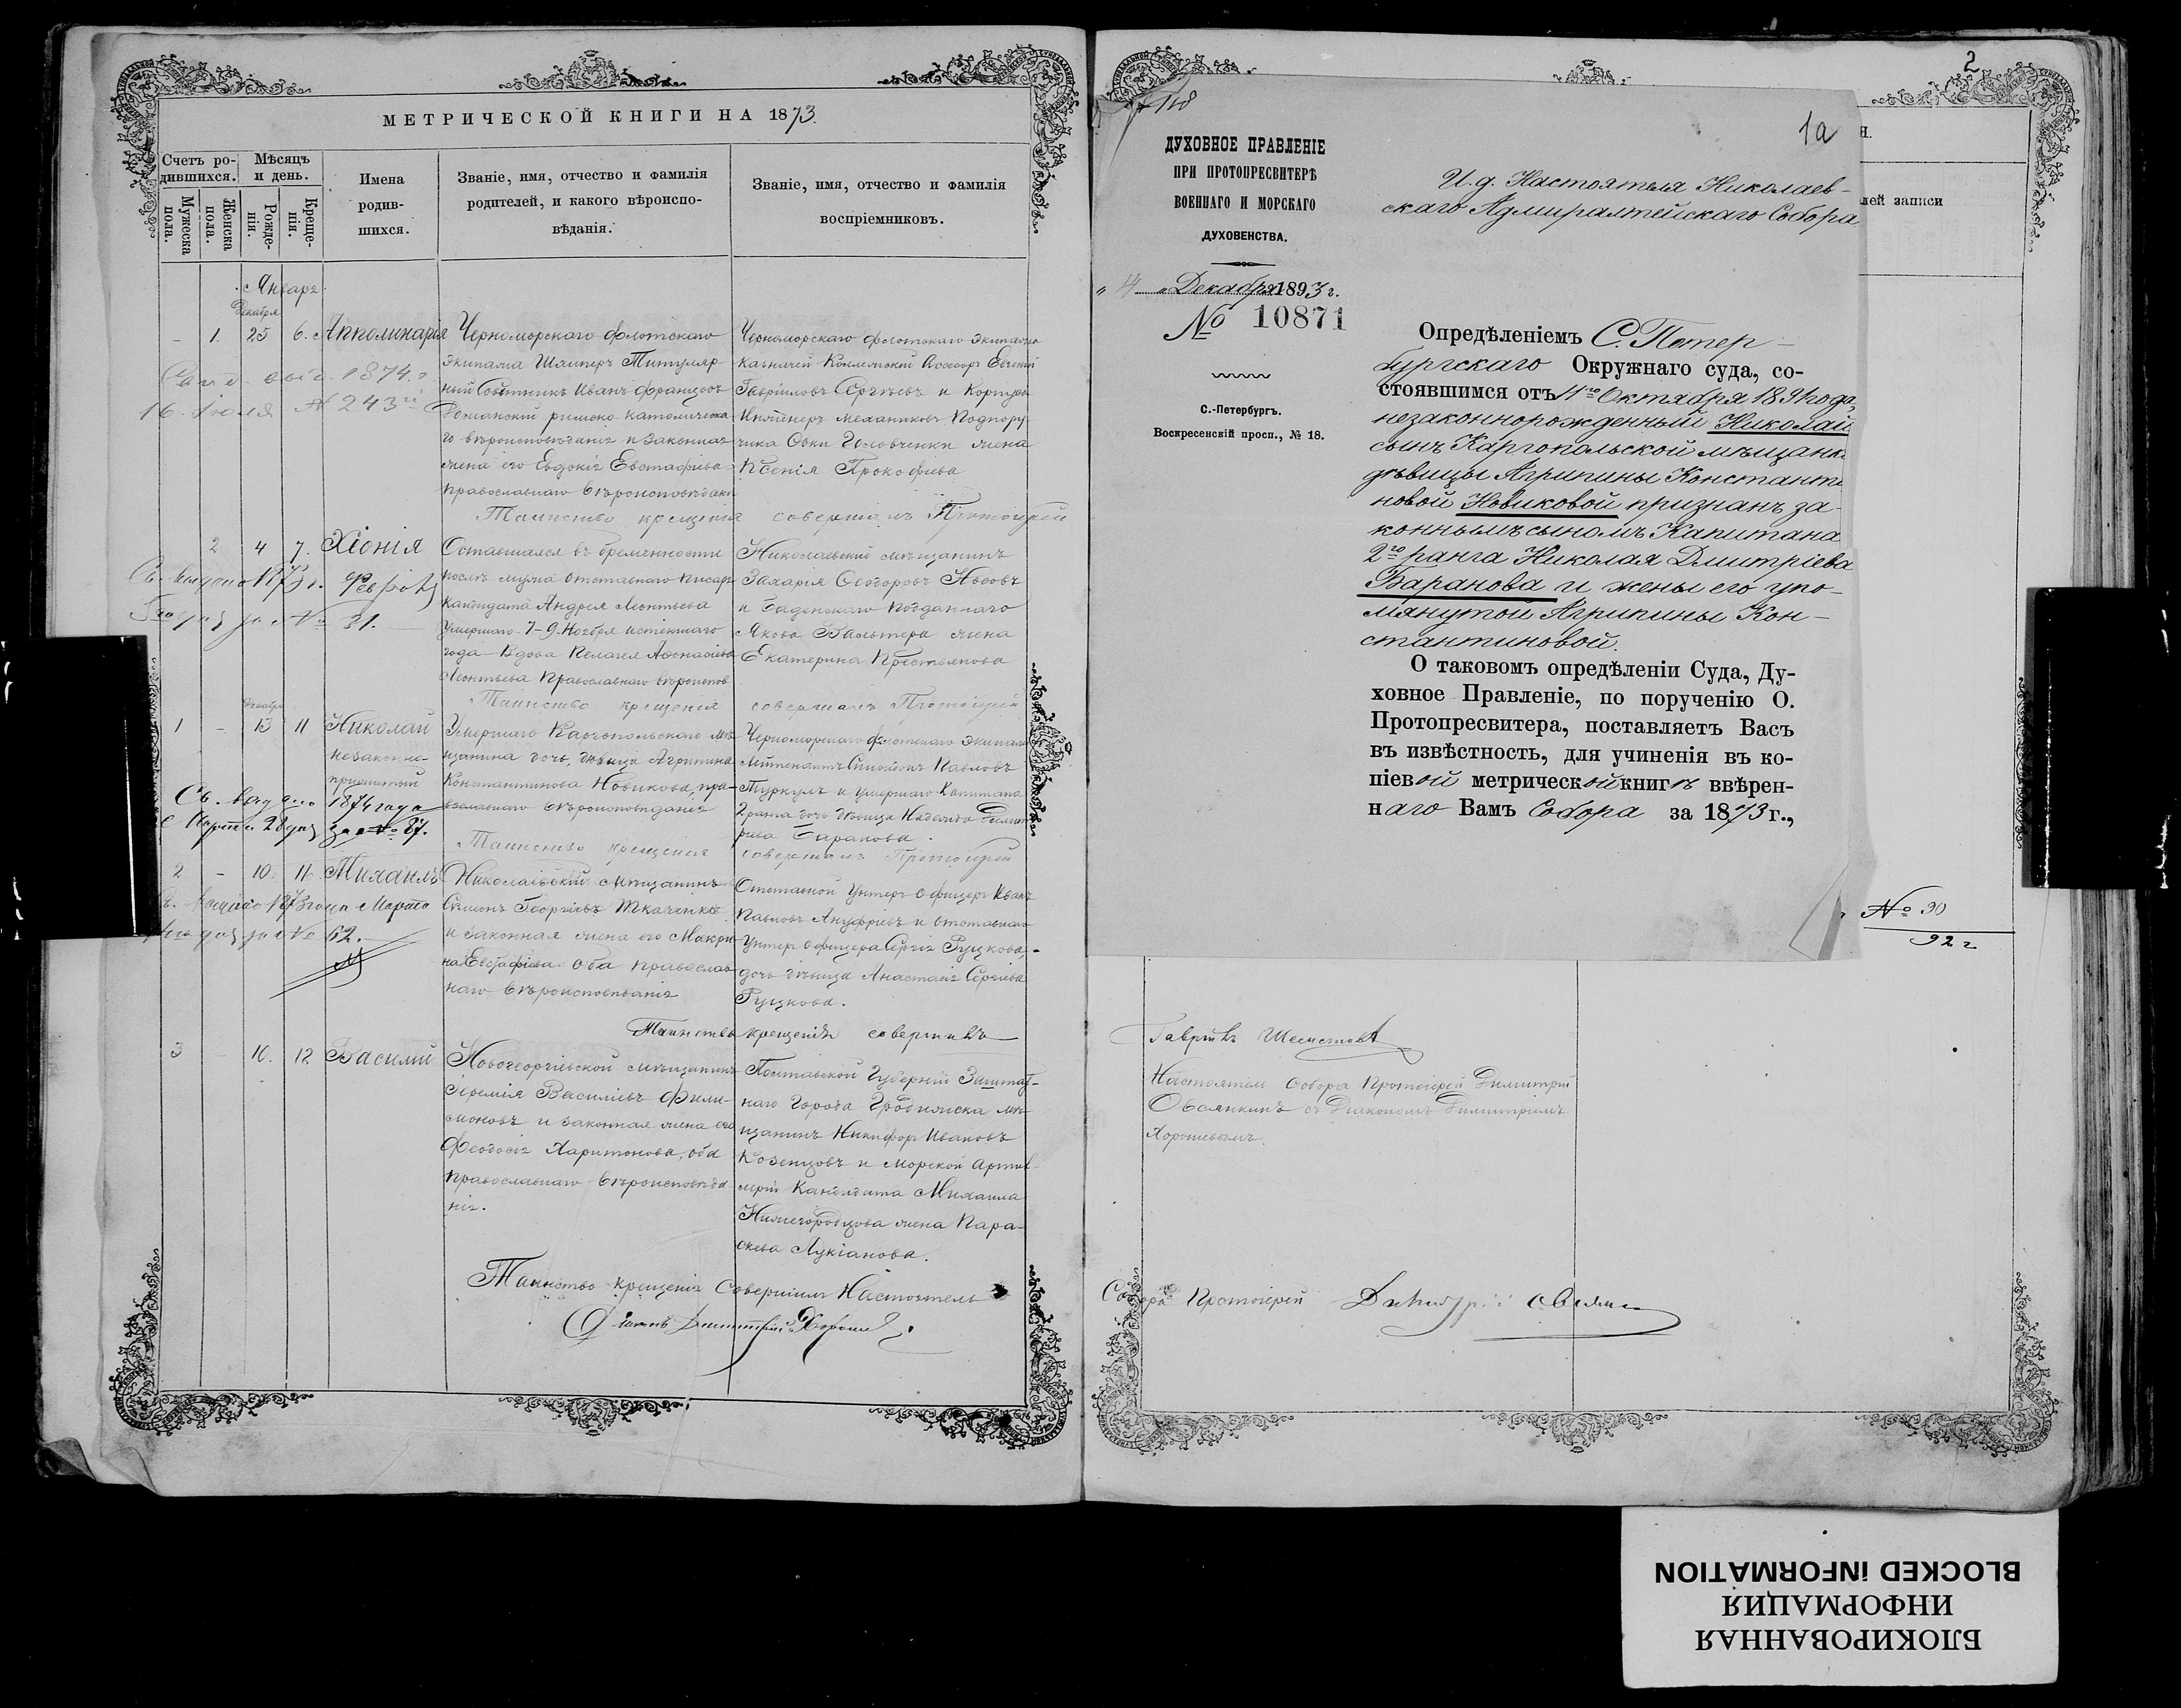 МЕТРИЧЕСКОЙ КНИГИ НА 1873.
Счетъ ро-
дившихся.
Мѣсяцъ
и день.
Мужеска
пола.
Женска
пола.
Рожде-
нія.
Креще-
нія.
Имена
родив-
шихся.
Званіе, имя, отчество и фамилія
родителей, и какого вѣроиспо-
вѣданія.
Званіе, имя, отчество и фамилія
воспріемниковъ.
Январь
Декабря
1. 25 6. Апполинарія
Черноморскаго флотскаго
экипажа Шкиперъ Титуляр-
ный Совѣтникъ Иванъ Францовъ
римско-католическа-
го вѣроисповѣданія и законная
жена его Евдокія Евстафіева
православнаго вѣроисповѣданія
Черноморскаго флотскаго экипажа
Казначей Коллежскій Ассесоръ Евгеній
Гавриловъ Сергѣевъ и Корпуса
Инженеръ Механиковъ Подпору-
чика Фоки Головченки жена
Ксенія Прокофіева
1874 г.
16. Іюля № 243
Таинство крещенія совершалъ Протоіерей
2 4 7. Хіонія
Оставшаяся въ беременности
послѣ мужа отставнаго писаря
Кандидата Андрея Леонтьева
Умершаго 7-9. Ноября истекшаго
года - Вдова Пелагея Афанасіева
Леонтьева Православнаго вѣроисповѣд
Николаевскій мѣщанинъ
Захарія Феодоровъ Новъ
и Баденскаго подданнаго
Якова Вальтера жена
Екатерина Крестьянова
Св. выдано 1873 г. Февр
за № 31.
Таинство крещенія совершалъ Протоіерей
Декабря
1 - 13 11 Николай
незаконно-
прижитый
Умершаго Каргопольскаго мѣ-
щанина дочь, дѣвица Агрипина
Константинова Новикова, пра-
вославнаго вѣроисповѣданія
Черноморскаго флотскаго экипажа
Лейтенантъ Симеонъ Павловъ
Туркулъ и умершаго Капитана
2 ранга дочь дѣвица Надежда Димит-
ріева Баранова.
Св. выдано 1874 года
Марта 28 дня за № 87.
Таинство крещенія совершалъ Протоіерей
2 - 10. 11. Михаилъ
Николаевскій мѣщанинъ
Симеонъ Георгіевъ Ткаченко
и законная жена его Макри-
на Евстафіева оба православ-
наго вѣроисповѣданія
Отставной Унтеръ Офицеръ Иванъ
Павловъ Ануфріевъ и отставнаго
Унтеръ офицера Сергія Руцкова-
дочь дѣвица Анастасія Сергіева
Руцкова.
выдано 1873 года Марта
дня за № 62.
Таинство крещенія совершилъ
3 - 10. 12 Василій
Новогеоргіевской мѣщанинъ
Іеремія Василіевъ Фили-
моновъ и законная жена его
Феодосія Харитонова, оба
Православнаго вѣроисповѣда
нія.
Полтавской Губерніи Заштат-
наго Города Градижска мѣ-
щанинъ Никифоръ Ивановъ
Козенцовъ и Морской Артил-
леріи Кандидата Михаила
Нижегородцова жена Пара-
скева Лукіанова.
Таинство крещенія Совершилъ Настоятель
Діаконъ Димитрій Хорошев
2
1а
н.
лей записи
ДУХОВНОЕ ПРАВЛЕНІЕ
ПРИ ПРОТОПРЕСВИТЕРѢ
ВОЕННАГО И МОРСКАГО
ДУХОВЕНСТВА.
„ 4 „ Декабря 1893 г.
№ 10871
С.-Петербургъ.
Воскресенскій просп., № 18.
И.д. Настоятеля Николаев-
скаго Адмиралтейскаго Собора.
Опредѣленіемъ С. Петер-
бургскаго Окружнаго суда, со-
стоявшимся отъ 11го Октября 1891 года,
незаконнорожденный Николай
сынъ Каргопольской мѣщанк
дѣвицы Агрипины Константи
новой Новиковой признанъ за-
коннымъ сыномъ Капитана
2го ранга Николая Дмитріева
Баранова и жены его упо-
мянутой Агрипины Кон-
стантиновой.
О таковомъ опредѣленіи Суда, Ду-
ховное Правленіе, по порученію О.
Протопресвитера, поставляетъ Васъ
въ извѣстность, для учиненія въ ко-
піевой метрической книгѣ ввѣрен-
наго Вамъ Собора за 1873 г.,
№ 90
92 г
Гавріилъ
Настоятель Собора Протоіерей Димитрій
Овсянкинъ съ Діакономъ Димитріемъ
Хорошевымъ.
Собора Протоіерей Димитрій Овсянкин
БЛОКИРОВАННАЯ
ИНФОРМАЦИЯ
BLOCKED INFORMATION